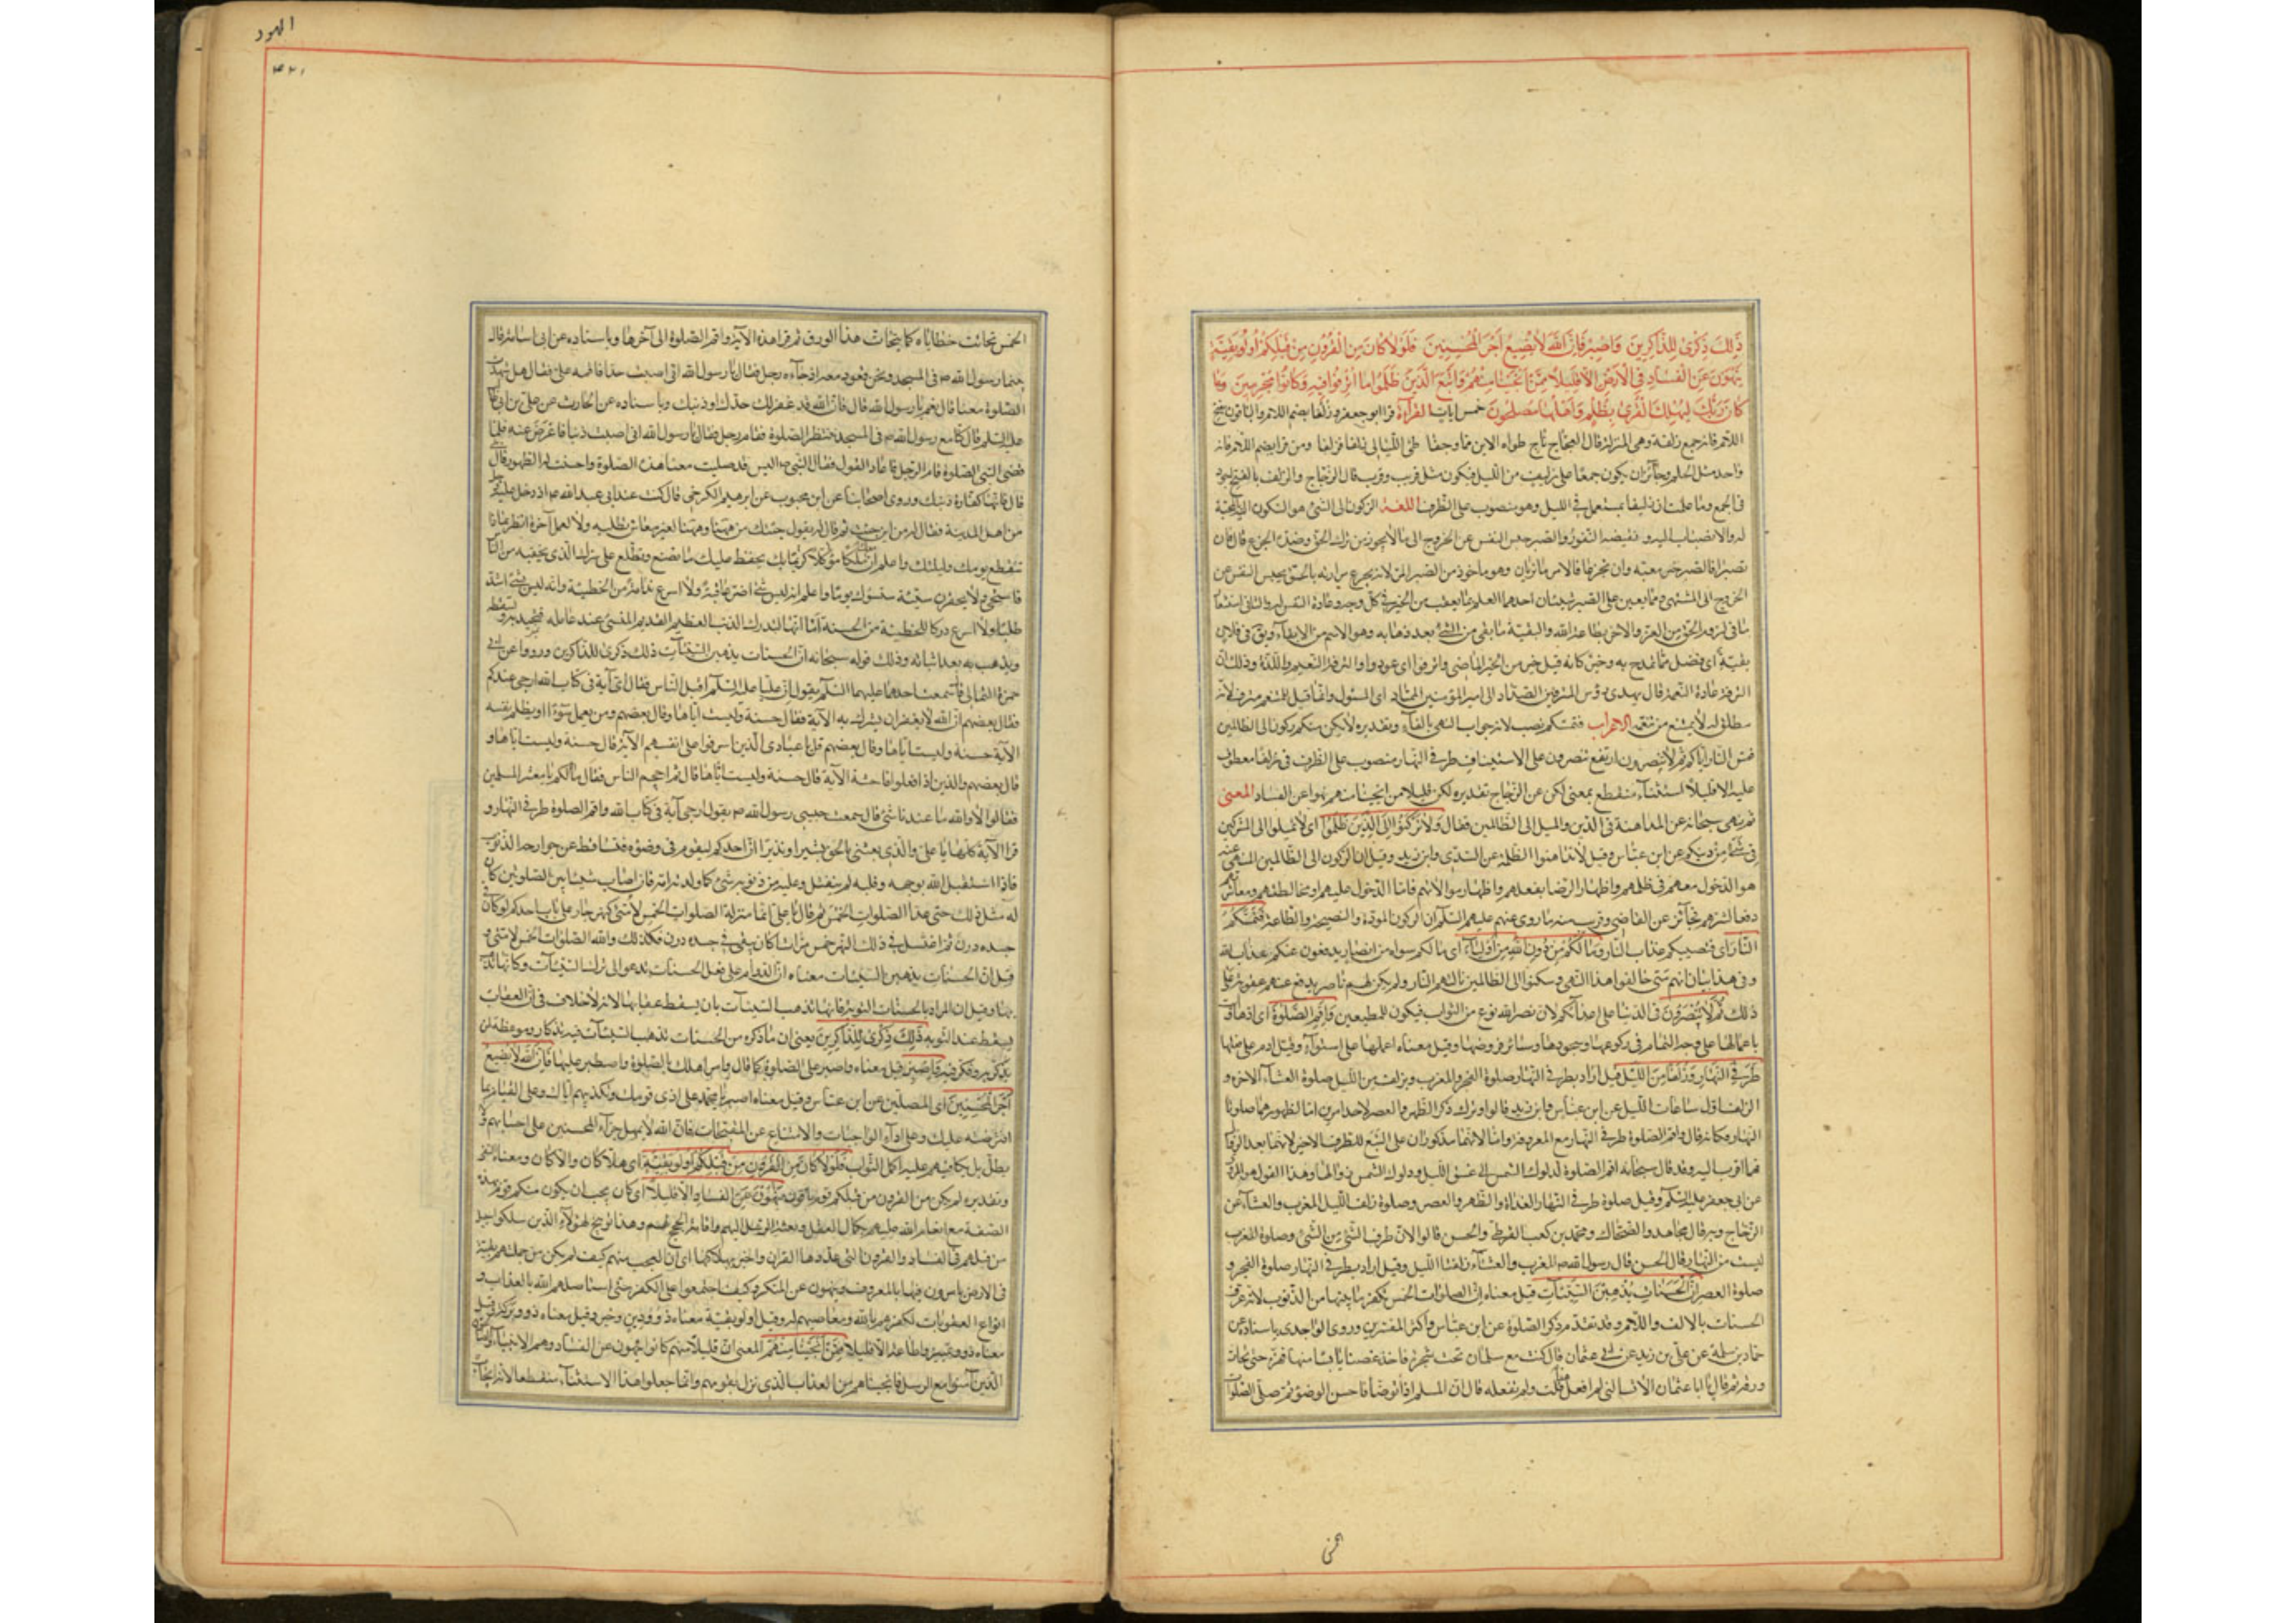 ذٰلِكَ ذِكْرىٰ لِلذّٰاكِرِينَ وَاصْبِرْ فَاِنَّ اللهَ لاٰيُضِيعُ اَجْرَ الْمُحْسِنِينَ فَلَوْلاٰ كٰانَ مِنَ الْقُرُونِ مِنْ قَبْلِكُمْ اُولُوا بَقِيَّةٍ
يَنْهَوْنَ عَنِ الْفَسٰادِ فِى الْاَرْضِ اِلاّٰ قَلِيلاً مِمَّنْ اَنْجَيْنٰا مِنْهُمْ وَاتَّبَعَ الَّذِينَ ظَلَمُوا مٰا اُتْرِفُوا فِيهِ وَكٰانُوا مُجْرِمِينَ وَمٰا
كٰانَ رَبُّكَ لِيُهْلِكَ الْقُرىٰ بِظُلْمٍ وَاَهْلُهٰا مُصْلِحُونَ خمس ايات القرآءة قرا ابو جعفر وزلفا بضم اللام والباقون بفتح
اللام فانه جمع زلفة وهى المنزلة قال العجاج ناج طواه الاين مما وجفا طى الليالى زلفا فزلفا ومن قرا بضم اللام فانه
واحد مثل الحلم وجائز ان يكون جمعا على زليف من الليل فيكون مثل قريب وقرب قال الزجاج والزلف بالفتح اجود
فى الجمع وما علمت ان زليفا يستعمل فى الليل وهو منصوب على الظرف اللغة الركون الى الشئ هو السكون اليه بالمحبة
له والانصباب اليه ونقيضه النفور والصبر حبس النفس عن الخروج الى ما لايجوز من ترك الحق وضده الجزع قال فان
تصبرا فالصبر خير مغبة وان تجزعا فالامر ما تريان وهو ماخوذ من الصبر المر لانه تجرع مرارة بالحق بحبس النفس عن
الخروج الى المشتهى ومما يعين على الصبر شيئان احدهما العلم بما يعقب من الخير فى كل وجه وعادة النفس له والثانى استشعار
ما فى لزوم الحق من العز والاجر بطاعة الله والبقية ما بقى من الشئ بعد ذهابه وهو الاسم من الابقاء ويق فى فلان
بقية اى فضل مما يمدح به وخير كانه قيل خير من الخير الماضى واترفوا اى عودوا والترفة النعيم واللذة وذلك ان
الترفة عادة النعمة قال يهدى رؤس المترفين الصداد الى امير المؤمنين الممتاد اى المسئول وانما قيل للمتنعم مترف لانه
مطلق له لايمنع من تنعمه الاعراب فتمسكم نصب لانه جواب النهى بالفاء وتقديره لايكن منكم ركون الى الظالمين
فمس النار اياكم ثم لا تنصرون ارتفع تنصرون على الاستيناف طرفى النهار منصوب على الظرف فى زلفا معطوف
عليه الا قليلا استثناء منقطع بمعنى لكن عن الزجاج تقديره لكن قليلا ممن انجينا منهم نهوا عن الفساد المعنى
ثم نهى سبحانه عن المداهنة فى الدين والميل الى الظالمين فقال وَلاٰ تَرْكَنُوا اِلَى الَّذِينَ ظَلَمُوا اى لا تميلوا الى المشركين
فى شئ من دينكم عن ابن عباس وقيل لا تداهنوا الظلمة عن السدى وابن زيد وقيل ان الركون الى الظالمين المنهى عنه
هو الدخول معهم فى ظلمهم واظهار الرضا بفعلهم واظهار موالاتهم فاما الدخول عليهم او مخالطتهم ومعاشرتهم
دفعا لشرهم فجائز عن القاضى وقريب منه ما روى عنهم عليهم السلم ان الركون المودة والنصيحة والطاعة فَتَمَسَّكُمُ
النّٰارُ اى فتصيبكم عذاب النار وَمٰا لَكُمْ مِنْ دُونِ اللهِ مِنْ اَوْلِيٰاءَ اى ما لكم سواه من انصار يدفعون عنكم عذاب الله
وفى هذا بيان انهم متى خالفوا هذا النهى وسكنوا الى الظالمين نالتهم النار ولم يكن لهم ناصر يدفع عنهم عقوبة على
ذلك ثُمَّ لاٰ تُنْصَرُونَ فى الدنيا على اعدائكم لان نصر الله نوع من الثواب فيكون للمطيعين وَاَقِمِ الصَّلٰوةَ اى ادها وات
باعمالها على وجه التمام فى ركوعها وسجودها وسائر فروضها وقيل معناه اعملها على استواء وقيل ادم على فعلها
طَرَفَىِ النَّهٰارِ وَزُلَفاً مِنَ اللَّيْلِ قيل اراد بطرفى النهار صلوة الفجر والمغرب وبزلف من الليل صلوة العشاء الاخرة و
الزلف اول ساعات الليل عن ابن عباس وابن زيد قالوا وترك ذكر الظهر والعصر لاحد امرين اما لظهورهما صلوتا
النهار فكانه قال واقم الصلوة طرفى النهار مع المعروفة واما لانهما مذكوران على التبع للطرف الاخير لانهما بعد الزوال
فهما اقرب اليه وقد قال سبحانه اقم الصلوة لدلوك الشمس الى غسق الليل ودلوك الشمس زوالها وهذا القول هو المروى
عن ابى جعفر عليه السلم وقيل صلوة طرفى النهار الغداة والظهر والعصر وصلوة زلف الليل المغرب والعشاء عن
الزجاج وبه قال مجاهد والضحاك ومحمد بن كعب القرظى والحسن قالوا لان طرف الشئ من الشئ وصلوة المغرب
ليست من النهار قال الحسن قال رسول الله ص المغرب والعشاء زلفتا الليل وقيل اراد بطرفى النهار صلوة الفجر و
صلوة العصر اِنَّ الْحَسَنٰاتِ يُذْهِبْنَ السَّيِّئٰاتِ قيل معناه ان الصلوات الخمس تكفر ما بينها من الذنوب لانه عرف
الحسنات بالالف واللام وقد تقدم ذكر الصلوة عن ابن عباس واكثر المفسرين وروى الواحدى باسناده عن
حماد بن سلمة عن على بن زيد عن ابى عثمان قال كنت مع سلمان تحت شجرة فاخذ غصنا يابسا منها فهزه حتى تحات
ورقه ثم قال يا ابا عثمان الا تسالنى لم افعل هذا قلت ولم تفعله قال ان المسلم اذا توضأ فاحسن الوضوء ثم صلى الصلوات
الخمس
الهود
۴۲۱
الخمس تحاتت خطاياه كما تحات هذا الورق ثم قرا هذه الآية واقم الصلوة الى آخرها وباسناده عن ابى امامة قال
بينما رسول الله ص فى المسجد ونحن قعود معه اذ جاءه رجل فقال يا رسول الله انى اصبت حدا فاقمه على فقال هل شهدت
الصلوة معنا قال نعم يا رسول الله قال فان الله قد غفر لك حدك او ذنبك وباسناده عن الحارث عن على بن ابى طالب
عليه السلم قال كنا مع رسول الله ص فى المسجد ننتظر الصلوة فقام رجل فقال يا رسول الله انى اصبت ذنبا فاعرض عنه فلما
قضى النبى الصلوة قام الرجل فاعاد القول فقال النبى ص اليس قد صليت معنا هذه الصلوة واحسنت لها الطهور قال بلى
قال فانها كفارة ذنبك وروى اصحابنا عن ابن محبوب عن ابرهيم الكرخى قال كنت عند ابى عبد الله ص اذ دخل عليه رجل
من اهل المدينة فقال له من اين جئت ثم قال له يقول جئتك من ههنا وههنا لغير معاش تطلبه ولا لعمل آخرة انظر بماذا
تنقطع يومك وليلتك واعلم ان معك ملكا مؤكلا كريما بك يحفظ عليك ما تصنع ويطلع على سرك الذى يخفيه من الناس
فاستحى ولا يحقرن سيئة ستسوك يوما واعلم انه ليس شئ اضر عاقبة ولا اسرع ندامة من الخطيئة وانه ليس شئ اشد
طلبا ولا اسرع دركا للخطيئة من الحسنة اما انها لتدرك الذنب العظيم القديم المنسى عند عامله فتجده به وتسقطه
ويذهب به بعد اثباته وذلك قوله سبحانه ان الحسنات يذهبن السيئات ذلك ذكرى للذاكرين ورووا عن ابى
حمزة الثمالى قال سمعت احدهما عليهما السلم يقول ان عليا عليه السلم اقبل الناس فقال اى آية فى كتاب الله ارجى عندكم
فقال بعضهم ان الله لا يغفر ان يشرك به الآية فقال حسنة وليست اياها وقال بعضهم ومن يعمل سوءا او يظلم نفسه
الآية حسنة وليست اياها وقال بعضهم قل يا عبادى الذين اسرفوا على انفسهم الآية قال حسنة وليست اياها و
قال بعضهم والذين اذا فعلوا فاحشة الآية قال حسنة وليست اياها قال ثم احجم الناس فقال ما لكم يا معشر المسلمين
فقالوا لا والله ما عندنا شئ قال سمعت حبيبى رسول الله ص يقول ارجى آية فى كتاب الله واقم الصلوة طرفى النهار و
قرا الآية كلها يا على والذى بعثنى بالحق بشيرا ونذيرا ان احدكم ليقوم فى وضوئه فتساقط عن جوارحه الذنوب
فاذا استقبل الله بوجهه وقلبه لم ينفتل وعليه من ذنوبه شئ كما ولدته امه فان اصاب شيئا بين الصلوتين كان
له مثل ذلك حتى عد الصلوات الخمس ثم قال يا على انما منزلة الصلوات الخمس لامتى كنهر جار على باب احدكم لو كان فى
جسده درن ثم اغتسل فى ذلك النهر خمس مرات اكان يبقى فى جسده درن فكذلك والله الصلوات الخمس لامتى و
قيل ان الحسنات يذهبن السيئات معناه ان الدوام على فعل الحسنات يدعوا الى ترك السيئات وكانها تذهب
بها وقيل ان المراد بالحسنات التوبة فانها تذهب السيئات بان يسقط عقابها لانه لا خلاف فى ان العقاب
يسقط عند التوبة ذٰلِكَ ذِكْرىٰ لِلذّٰاكِرِينَ يعنى ان ما ذكره من الحسنات تذهب السيئات فيه تذكار وموعظة لمن
تذكر به وفكر فيه وَاصْبِرْ قيل معناه واصبر على الصلوة كما قال وامر اهلك بالصلوة واصطبر عليها فَاِنَّ اللهَ لاٰ يُضِيعُ
اَجْرَ الْمُحْسِنِينَ اى المصلين عن ابن عباس وقيل معناه اصبر يا محمد على اذى قومك وتكذيبهم اياك وعلى القيام بما
افترضته عليك وعلى اداء الواجبات والامتناع عن المقبحات فان الله لا يهمل جزاء المحسنين على احسانهم ولا
يبطل بل يكافيهم عليه اكمل الثواب فَلَوْلاٰ كٰانَ مِنَ الْقُرُونِ مِنْ قَبْلِكُمْ اُولُوا بَقِيَّةٍ اى هلا كان والا كان ومعناه النفى
وتقديره لم يكن من القرون من قبلكم قوم باقون يَنْهَوْنَ عَنِ الْفَسٰادِ الا قليلا اى كان يجب ان يكون منكم قوم بهذه
الصفة مع انعام الله عليهم بكمال العقل وبعثة الرسل اليهم واقامة الحجج لهم وهذا توبيخ لهؤلاء الذين سلكوا سبيل
من قبلهم فى الفساد والقرون التى عددها القران واخبر بهلاكها اى ان العجب منهم كيف لم يكن من جملتهم بقية
فى الارض يامرون فيها بالمعروف وينهون عن المنكر وكيف اجتمعوا على الكفر حتى استاصلهم الله بالعذاب و
انواع العقوبات لكفرهم بالله ومعاصيهم له وقيل اولو بقية معناه ذوو دين وخير وقيل معناه ذوو تركة وقيل
معناه ذوو تمييز وطاعة اِلاّٰ قَلِيلاً مِمَّنْ اَنْجَيْنٰا مِنْهُمْ المعنى ان قليلا منهم كانوا ينهون عن الفساد وهم الانبياء والصالحون
الذين آمنوا مع الرسل فانجيناهم من العذاب الذى نزل بقومهم وانما جعلوا هذا الاستثناء منقطعا لانه ايجاب